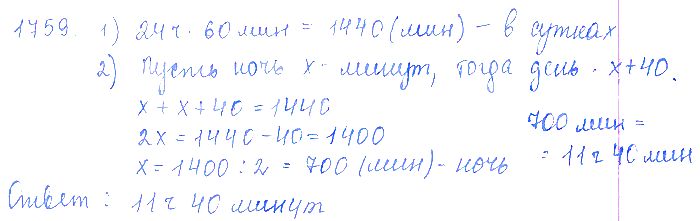 1759. 1) 24 ч · 60 мин = 1440 (мин) – в сутках
2) Пусть ночь x минут, тогда день x + 40.
x + x + 40 = 1440
2x = 1440 – 40 = 1400
x = 1400 : 2 = 700 (мин) – ночь
700 мин =
= 11 ч 40 мин
Ответ: 11 ч 40 минут